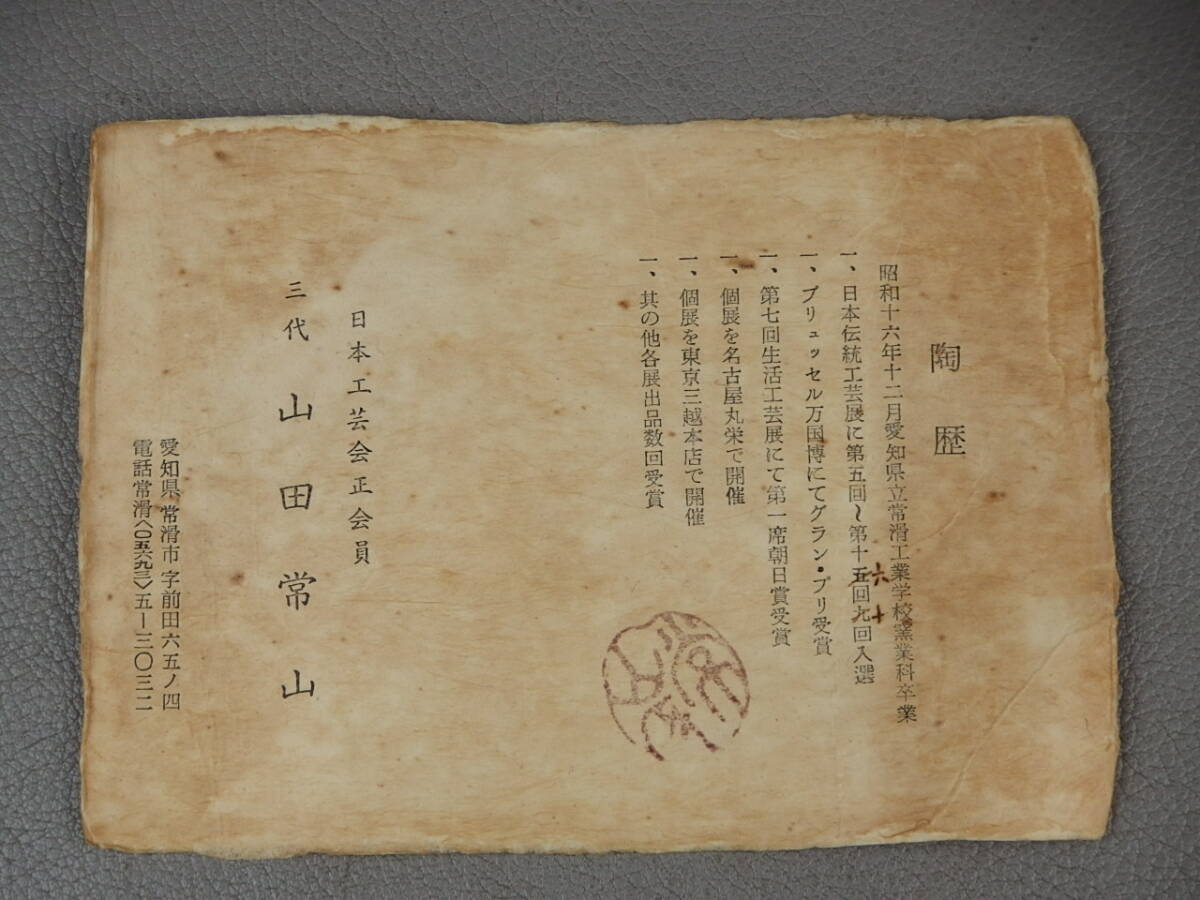 陶歴
昭和十六年十二月愛知県立常滑工業学校窯業科卒業
一、日本伝統工芸展に第五回〜第十五回九回入選
六 十
一、ブリュッセル万国博にてグラン・プリ受賞
一、第七回生活工芸展にて第一席朝日賞受賞
一、個展を名古屋丸栄で開催
一、個展を東京三越本店で開催
一、其の他各展出品数回受賞
日本工芸会正会員
三代 山田常山
愛知県常滑市字前田六五ノ四
電話常滑〈〇五六九三〉五ー三〇三二